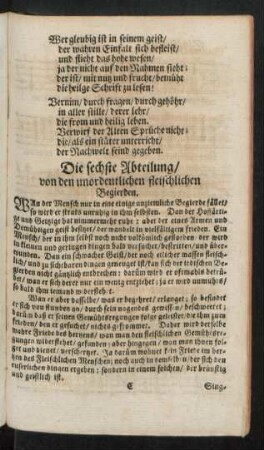 Wer gleubig ist in seinem geist/
der wahren Einfalt sich befleist/
und flieht das hohe wesen/
ja der nicht auf den Nahmen sieht:
der ist/ mit nutz und frucht/ bemüht
die heilge Schrift zu lesen/
Vernim/ durch fragen/ durch gehöhr/
in aller stille/ derer lehr/
die from und heilig leben.
Verwirf der Alten Sprüche nicht:
die/ als ein stäter unterricht/
der Nachwelt seind gegeben.
Die sechste Abteilung/
von den unordentlichen fleischlichen
Begierden.
WAn der Mensch nur in eine einige unziemliche Begierde fället/
so wird er straks unruhig in ihm selbsten. Dan der Hoffärtige
und Geitzige hat nimmermehr ruhe: aber der eines Armen und
Demühtigen geist besitzet/ der wandelt in vielfältigem frieden. Ein
Mensch/ der in ihm selbst noch nicht volkömlich gestorben/ der wird
in kleinen und geringen dingen bald versuchet/ bestritten/ und über-
wunden. Dan ein schwacher Geist/ der noch etlicher maßen fleisch-
lich/ und zu sichtbaren dingen geneugt ist/ kan sich der irdischen Be-
gierden nicht gäntzlich entbrechen: darüm wird er oftmahls betrü-
bet/ wan er sich derer nur ein wenig entziehet; ja er wird unwillig/
so bald ihm iemand widerstehet.
Wan er aber dasselbe/ was er begehret/ erlanget; so befindet
er sich von stunden an/ durch sein nagendes gewissen/ beschweeret;
darüm daß er seinen Gemühtsregungen folge geleistet/ die ihm zum
frieden/ den er gesuchet/ nichts gefrommet. Daher wird der selbe
wahre Friede des hertzens/ wan man den fleischlichen Gemühtsre-
gungen widerstehet/ gefunden: aber hingegen/ wan man ihnen fol-
get und dienet/ verschertzet. Ja darüm wohnet kein Friede im her-
tzen des Fleischlichen Menschen; noch auch in demselben/ der sich den
euserlichen dingen ergeben: sondern in einem solchen/ der brünstig
und geistlich ist.
C
Sing-